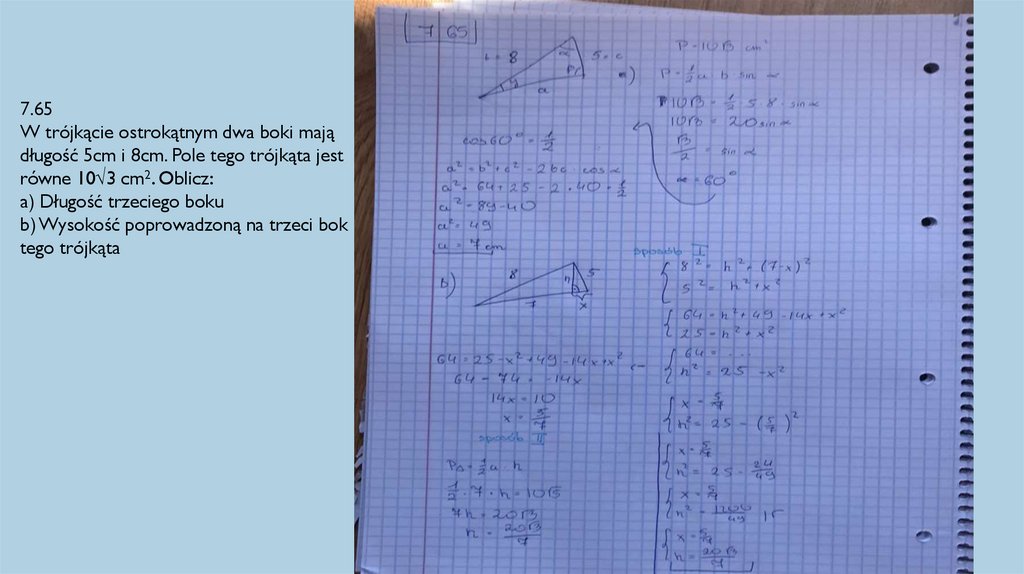 7.65
W trójkącie ostrokątnym dwa boki mają
długość 5cm i 8cm. Pole tego trójkąta jest
równe 10√3 cm². Oblicz:
a) Długość trzeciego boku
b) Wysokość poprowadzoną na trzeci bok
tego trójkąta
7 65
b = 8
α
5 = c
P₁
a
a)
P = 10√3 cm²
P = ½ a · b · sin α
10√3 = ½ · 5 · 8 · sin α
10√3 = 20 sin α
√3/2 = sin α
α = 60°
cos 60° = ½
a² = b² + c² - 2bc · cos α
a² = 64 + 25 - 2 · 40 · ½
a² = 89 - 40
a² = 49
a = 7 cm
b)
8
h
5
7
x
sposób I
8² = h² + (7-x)²
5² = h² + x²
64 = h² + 49 - 14x + x²
25 = h² + x²
64 = ...
h² = 25 - x²
64 = 25 - x² + 49 - 14x + x²
64 - 74 = -14x
14x = 10
x = 5/7
x = 5/7
h² = 25 - (5/7)²
x = 5/7
h² = 25 - 24/49
x = 5/7
h² = 1200/49 |√
x = 5/7
h = 20√3/7
sposób II
P△ = ½ a · h
½ · 7 · h = 10√3
7h = 20√3
h = 20√3/7